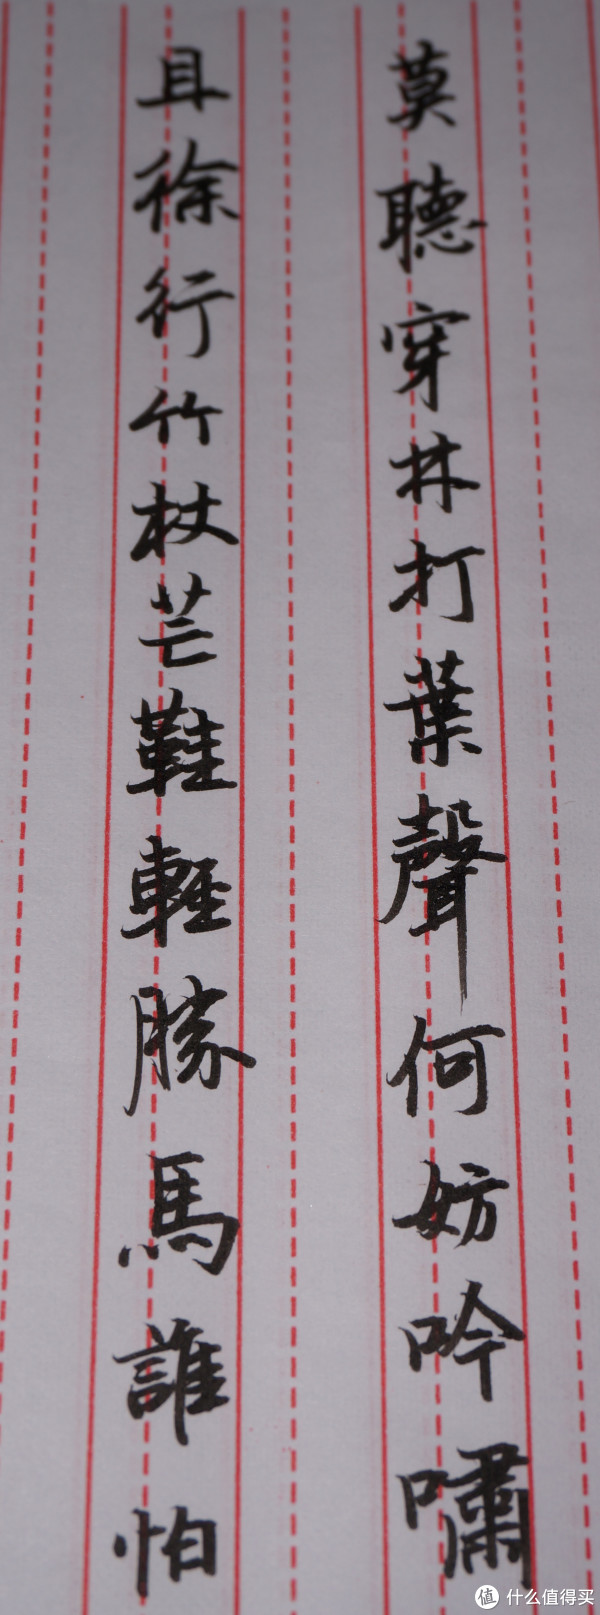 莫聽穿林打葉聲何妨吟嘯
且徐行竹杖芒鞋輕勝馬誰怕
值 什么值得买